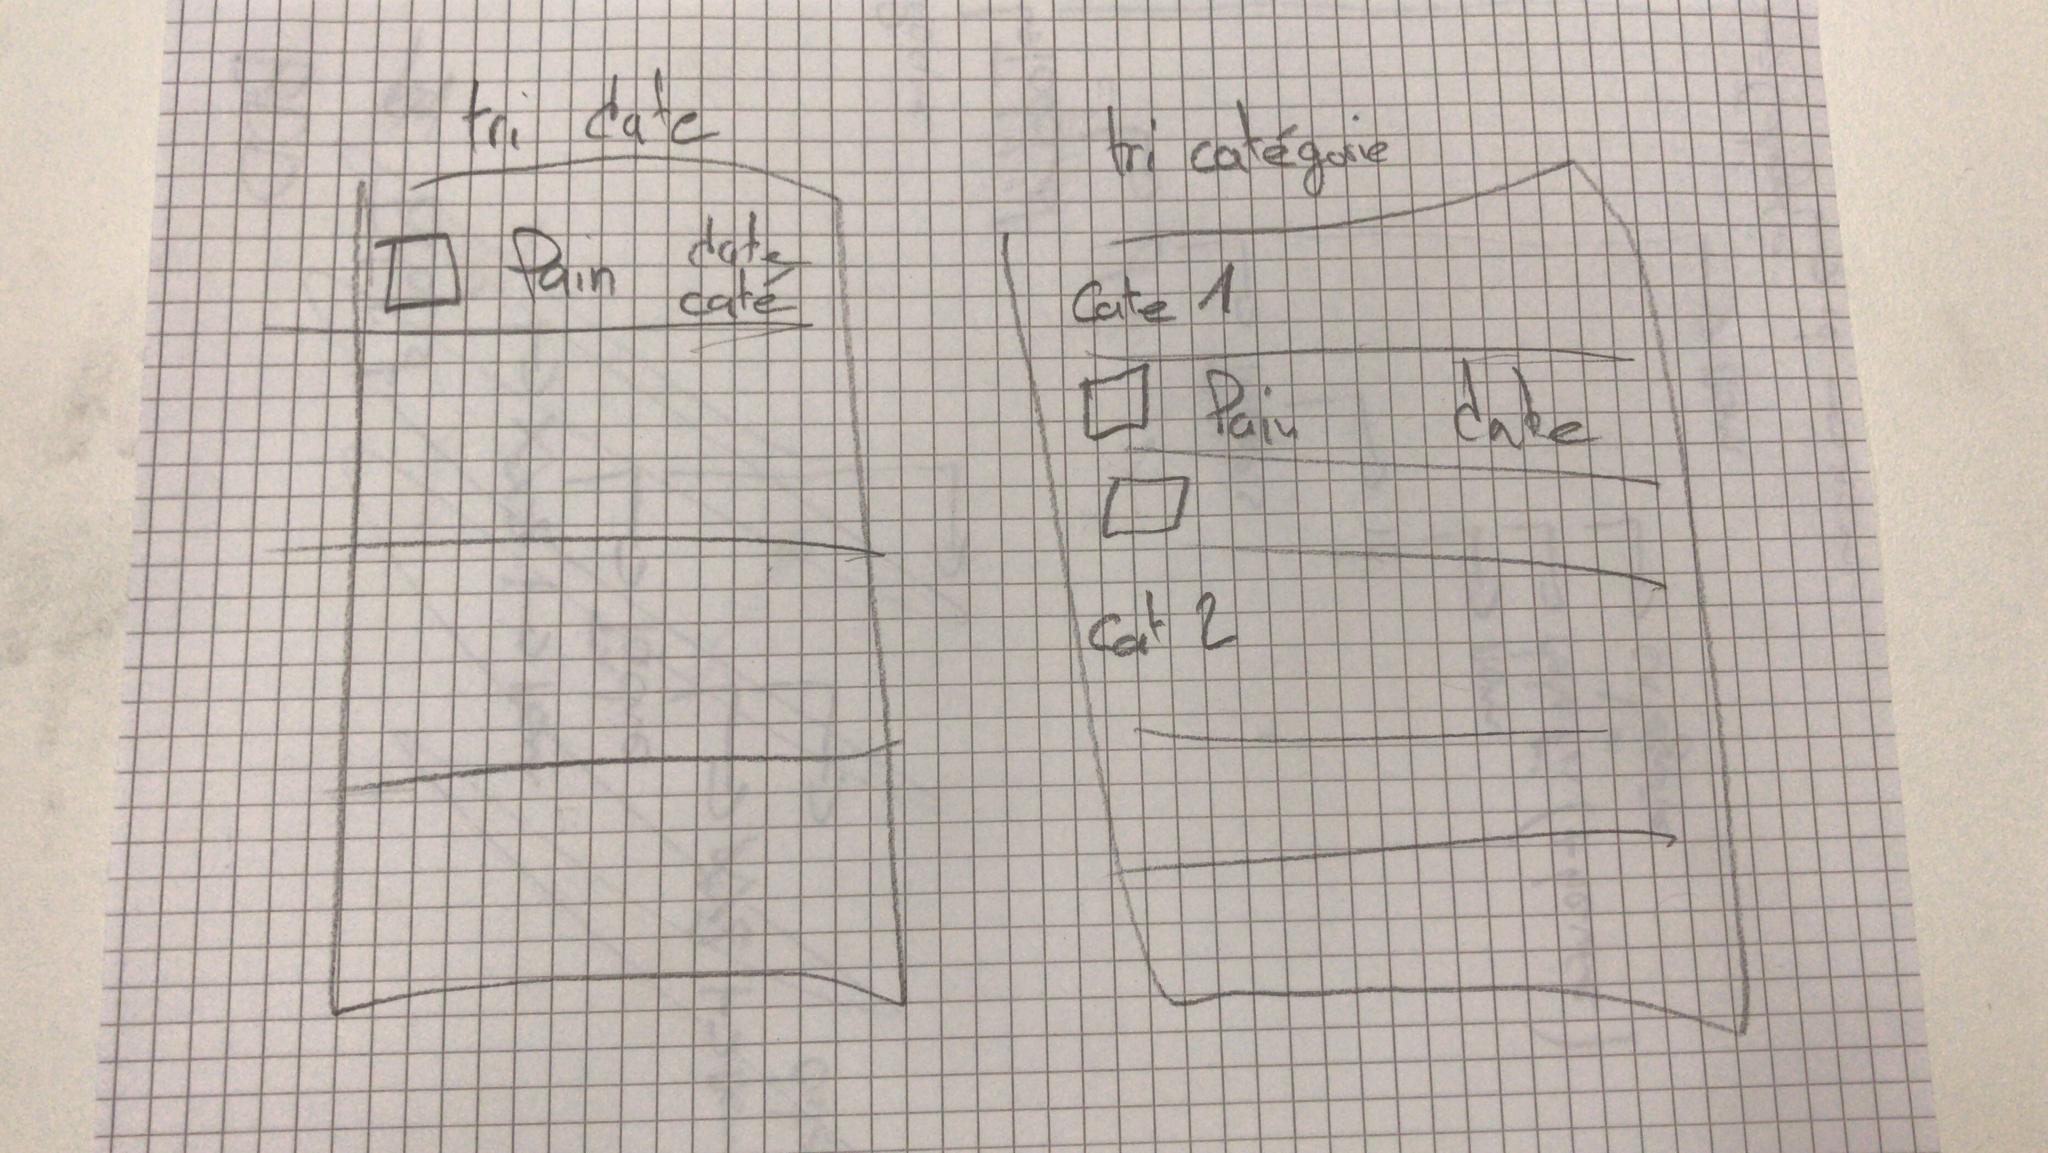 tri date
Pain date
caté
tri catégorie
Cate 1
Pain date
Cat 2